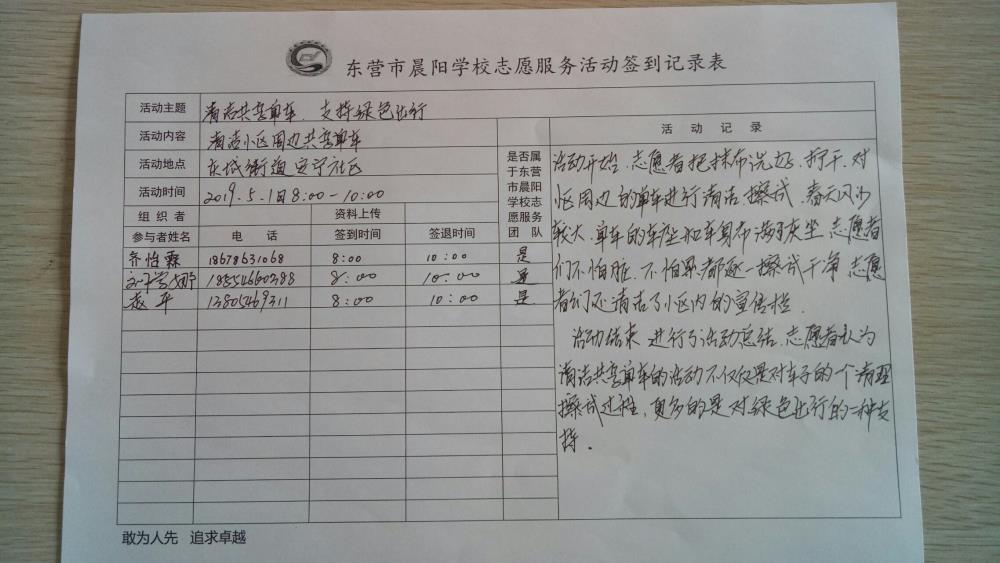 东营市晨阳学校志愿服务活动签到记录表
活动主题 清洁共享单车、支持绿色出行
活动内容 清洁小区周边共享单车
活动地点 东城街道安宁社区
活动时间 2019.5.1日8:00-10:00
组织者 资料上传
参与者姓名 电话 签到时间 签退时间
是否属
于东营
市晨阳
学校志
愿服务
团队
齐怡霖 18678631068 8:00 10:00 是
18554660288 8:00 10:00 是
赵平 13805469311 8:00 10:00 是
活动记录
活动开始、志愿者把抹布洗好、拧干、对
小区周边的单车进行清洁、擦拭、春天风沙
较大、单车的车座和车身布满了灰尘、志愿者
们不怕脏、不怕累、都逐一擦拭干净、志愿
者们还清洁了小区内的宣传栏.
活动结束、进行了活动总结、志愿者认为
清洁共享单车的活动不仅仅是对车子的一个清理
擦拭过程、更多的是对绿色出行的一种支
持.
敢为人先 追求卓越